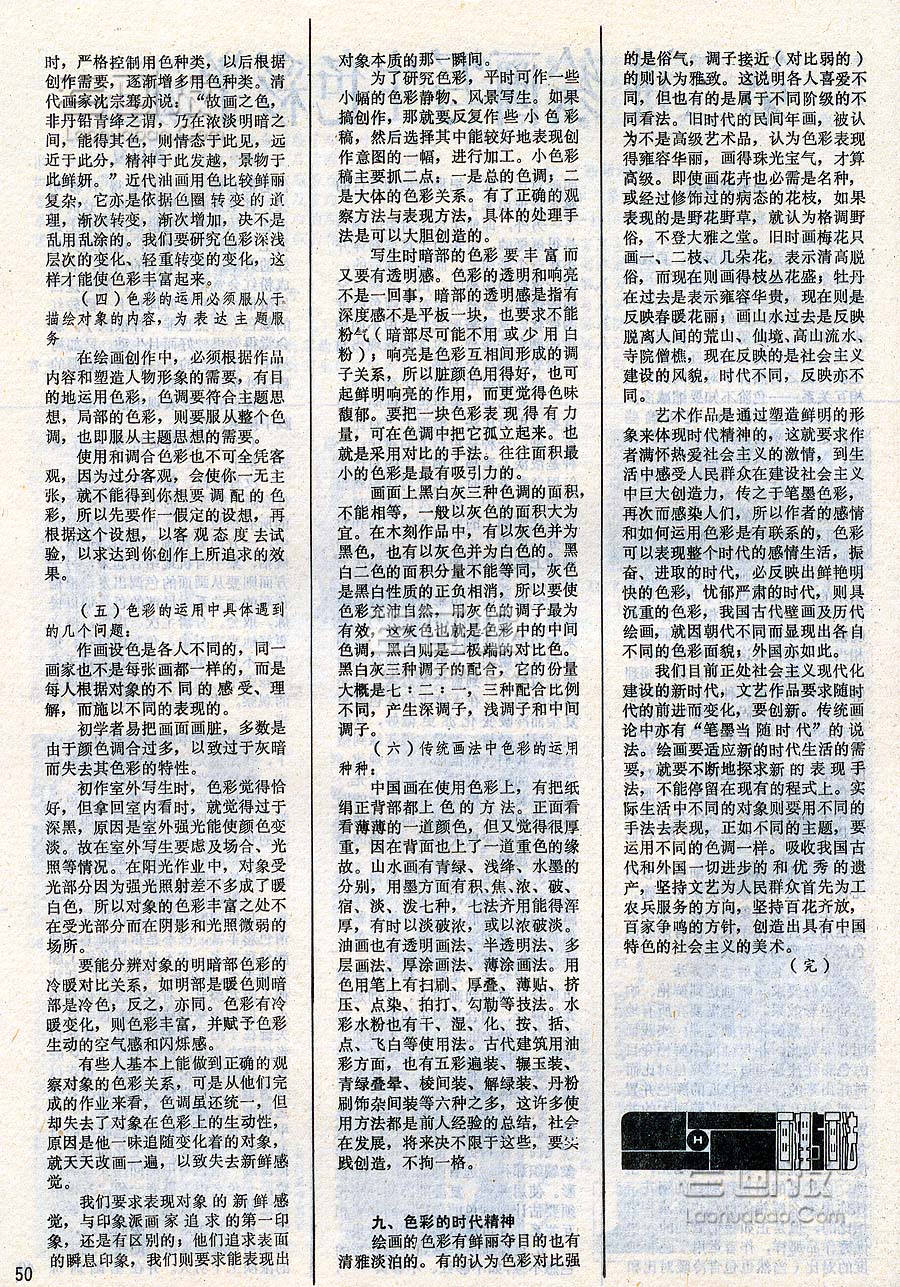 时，严格控制用色种类，以后根据
创作需要，逐渐增多用色种类。清
代画家沈宗骞亦说：“故画之色，
非丹铅青绛之谓，乃在浓淡明暗之
间，能得其色，则情态于此见，远
近于此分，精神于此发越，景物于
此鲜妍。”近代油画用色比较鲜丽
复杂，它亦是依据色圈转变的道
理，渐次转变，渐次增加，决不是
乱用乱涂的。我们要研究色彩深浅
层次的变化、轻重转变的变化，这
样才能使色彩丰富起来。
（四）色彩的运用必须服从于
描绘对象的内容，为表达主题服
务
在绘画创作中，必须根据作品
内容和塑造人物形象的需要，有目
的地运用色彩，色调要符合主题思
想，局部的色彩，则要服从整个色
调，也即服从主题思想的需要。
使用和调合色彩也不可全凭客
观，因为过分客观，会使你一无主
张，就不能得到你想要调配的色
彩，所以先要作一假定的设想，再
根据这个设想，以客观态度去试
验，以求达到你创作上所追求的效
果。
（五）色彩的运用中具体遇到
的几个问题：
作画设色是各人不同的，同一
画家也不是每张画都一样的，而是
每人根据对象的不同的感受、理
解，而施以不同的表现的。
初学者易把画面画脏，多数是
由于颜色调合过多，以致过于灰暗
而失去其色彩的特性。
初作室外写生时，色彩觉得恰
好，但拿回室内看时，就觉得过于
深黑，原因是室外强光能使颜色变
淡。故在室外写生要虑及场合、光
照等情况。在阳光作业中，对象受
光部分因为强光照射差不多成了暖
白色，所以对象的色彩丰富之处不
在受光部分而在阴影和光照微弱的
场所。
要能分辨对象的明暗部色彩的
冷暖对比关系，如明部是暖色则暗
部是冷色；反之，亦同。色彩有冷
暖变化，则色彩丰富，并赋予色彩
生动的空气感和闪烁感。
有些人基本上能做到正确的观
察对象的色彩关系，可是从他们完
成的作业来看，色调虽还统一，但
却失去了对象在色彩上的生动性，
原因是他一味追随变化着的对象，
就天天改画一遍，以致失去新鲜感
觉。
我们要求表现对象的新鲜感
觉，与印象派画家追求的第一印
象，还是有区别的；他们追求表面
的瞬息印象，我们则要求能表现出
50
对象本质的那一瞬间。
为了研究色彩，平时可作一些
小幅的色彩静物、风景写生。如果
搞创作，那就要反复作些小色彩
稿，然后选择其中能较好地表现创
作意图的一幅，进行加工。小色彩
稿主要抓二点；一是总的色调；二
是大体的色彩关系。有了正确的观
察方法与表现方法，具体的处理手
法是可以大胆创造的。
写生时暗部的色彩要丰富而
又要有透明感。色彩的透明和响亮
不是一回事，暗部的透明感是指有
深度感不是平板一块，也要求不能
粉气（暗部尽可能不用或少用白
粉）；响亮是色彩互相间形成的调
子关系，所以脏颜色用得好，也可
起鲜明响亮的作用，而更觉得色味
馥郁。要把一块色彩表现得有力
量，可在色调中把它孤立起来。也
就是采用对比的手法。往往面积最
小的色彩是最有吸引力的。
画面上黑白灰三种色调的面积，
不能相等，一般以灰色的面积大为
宜。在木刻作品中，有以灰色并为
黑色，也有以灰色并为白色的。黑
白二色的面积分量不能等同，灰色
是黑白性质的正负相消，所以要使
色彩充沛自然，用灰色的调子最为
有效，这灰色也就是色彩中的中间
色调，黑白则是二极端的对比色。
黑白灰三种调子的配合，它的份量
大概是七：二：一，三种配合比例
不同，产生深调子，浅调子和中间
调子。
（六）传统画法中色彩的运用
种种：
中国画在使用色彩上，有把纸
绢正背部都上色的方法。正面看
看薄薄的一道颜色，但又觉得很厚
重，因在背面也上了一道重色的缘
故。山水画有青绿、浅绛、水墨的
分别，用墨方面有积、焦、浓、破、
宿、淡、泼七种，七法齐用能得浑
厚，有时以淡破浓，或以浓破淡。
油画也有透明画法、半透明法、多
层画法、厚涂画法、薄涂画法。用
色用笔上有扫刷、厚叠、薄贴、挤
压、点染、拍打、勾勒等技法。水
彩水粉也有干、湿、化、按、括、
点、飞白等使用法。古代建筑用油
彩方面，也有五彩遍装、辗玉装、
青绿叠晕、棱间装、解绿装、丹粉
刷饰杂间装等六种之多，这许多使
用方法都是前人经验的总结，社会
在发展，将来决不限于这些，要实
践创造，不拘一格。
九、色彩的时代精神
绘画的色彩有鲜丽夺目的也有
清雅淡泊的。有的认为色彩对比强
的是俗气，调子接近（对比弱的）
的则认为雅致。这说明各人喜爱不
同，但也有的是属于不同阶级的不
同看法。旧时代的民间年画，被认
为不是高级艺术品，认为色彩表现
得雍容华丽，画得珠光宝气，才算
高级。即使画花卉也必需是名种，
或经过修饰过的病态的花枝，如果
表现的是野花野草，就认为格调野
俗，不登大雅之堂。旧时画梅花只
画一、二枝、几朵花，表示清高脱
俗，而现在则画得枝丛花盛；牡丹
在过去是表示雍容华贵，现在则是
反映春暖花丽；画山水过去是反映
脱离人间的荒山、仙境、高山流水、
寺院僧樵，现在反映的是社会主义
建设的风貌，时代不同，反映亦不
同。
艺术作品是通过塑造鲜明的形
象来体现时代精神的，这就要求作
者满怀热爱社会主义的激情，到生
活中感受人民群众在建设社会主义
中巨大创造力，传之于笔墨色彩，
再次而感染人们，所以作者的感情
和如何运用色彩是有联系的，色彩
可以表现整个时代的感情生活，振
奋、进取的时代，必反映出鲜艳明
快的色彩，忧郁严肃的时代，则具
沉重的色彩，我国古代壁画及历代
绘画，就因朝代不同而显现出各自
不同的色彩面貌；外国亦如此。
我们目前正处社会主义现代化
建设的新时代，文艺作品要求随时
代的前进而变化，要创新。传统画
论中亦有“笔墨当随时代”的说
法。绘画要适应新的时代生活的需
要，就要不断地探求新的表现手
法，不能停留在现有的程式上。实
际生活中不同的对象则要用不同的
手法去表现，正如不同的主题，要
运用不同的色调一样。吸收我国古
代和外国一切进步的和优秀的遗
产，坚持文艺为人民群众首先为工
农兵服务的方向，坚持百花齐放，
百家争鸣的方针，创造出具有中国
特色的社会主义的美术。
（完）
H
老画报
Laohuabao.com